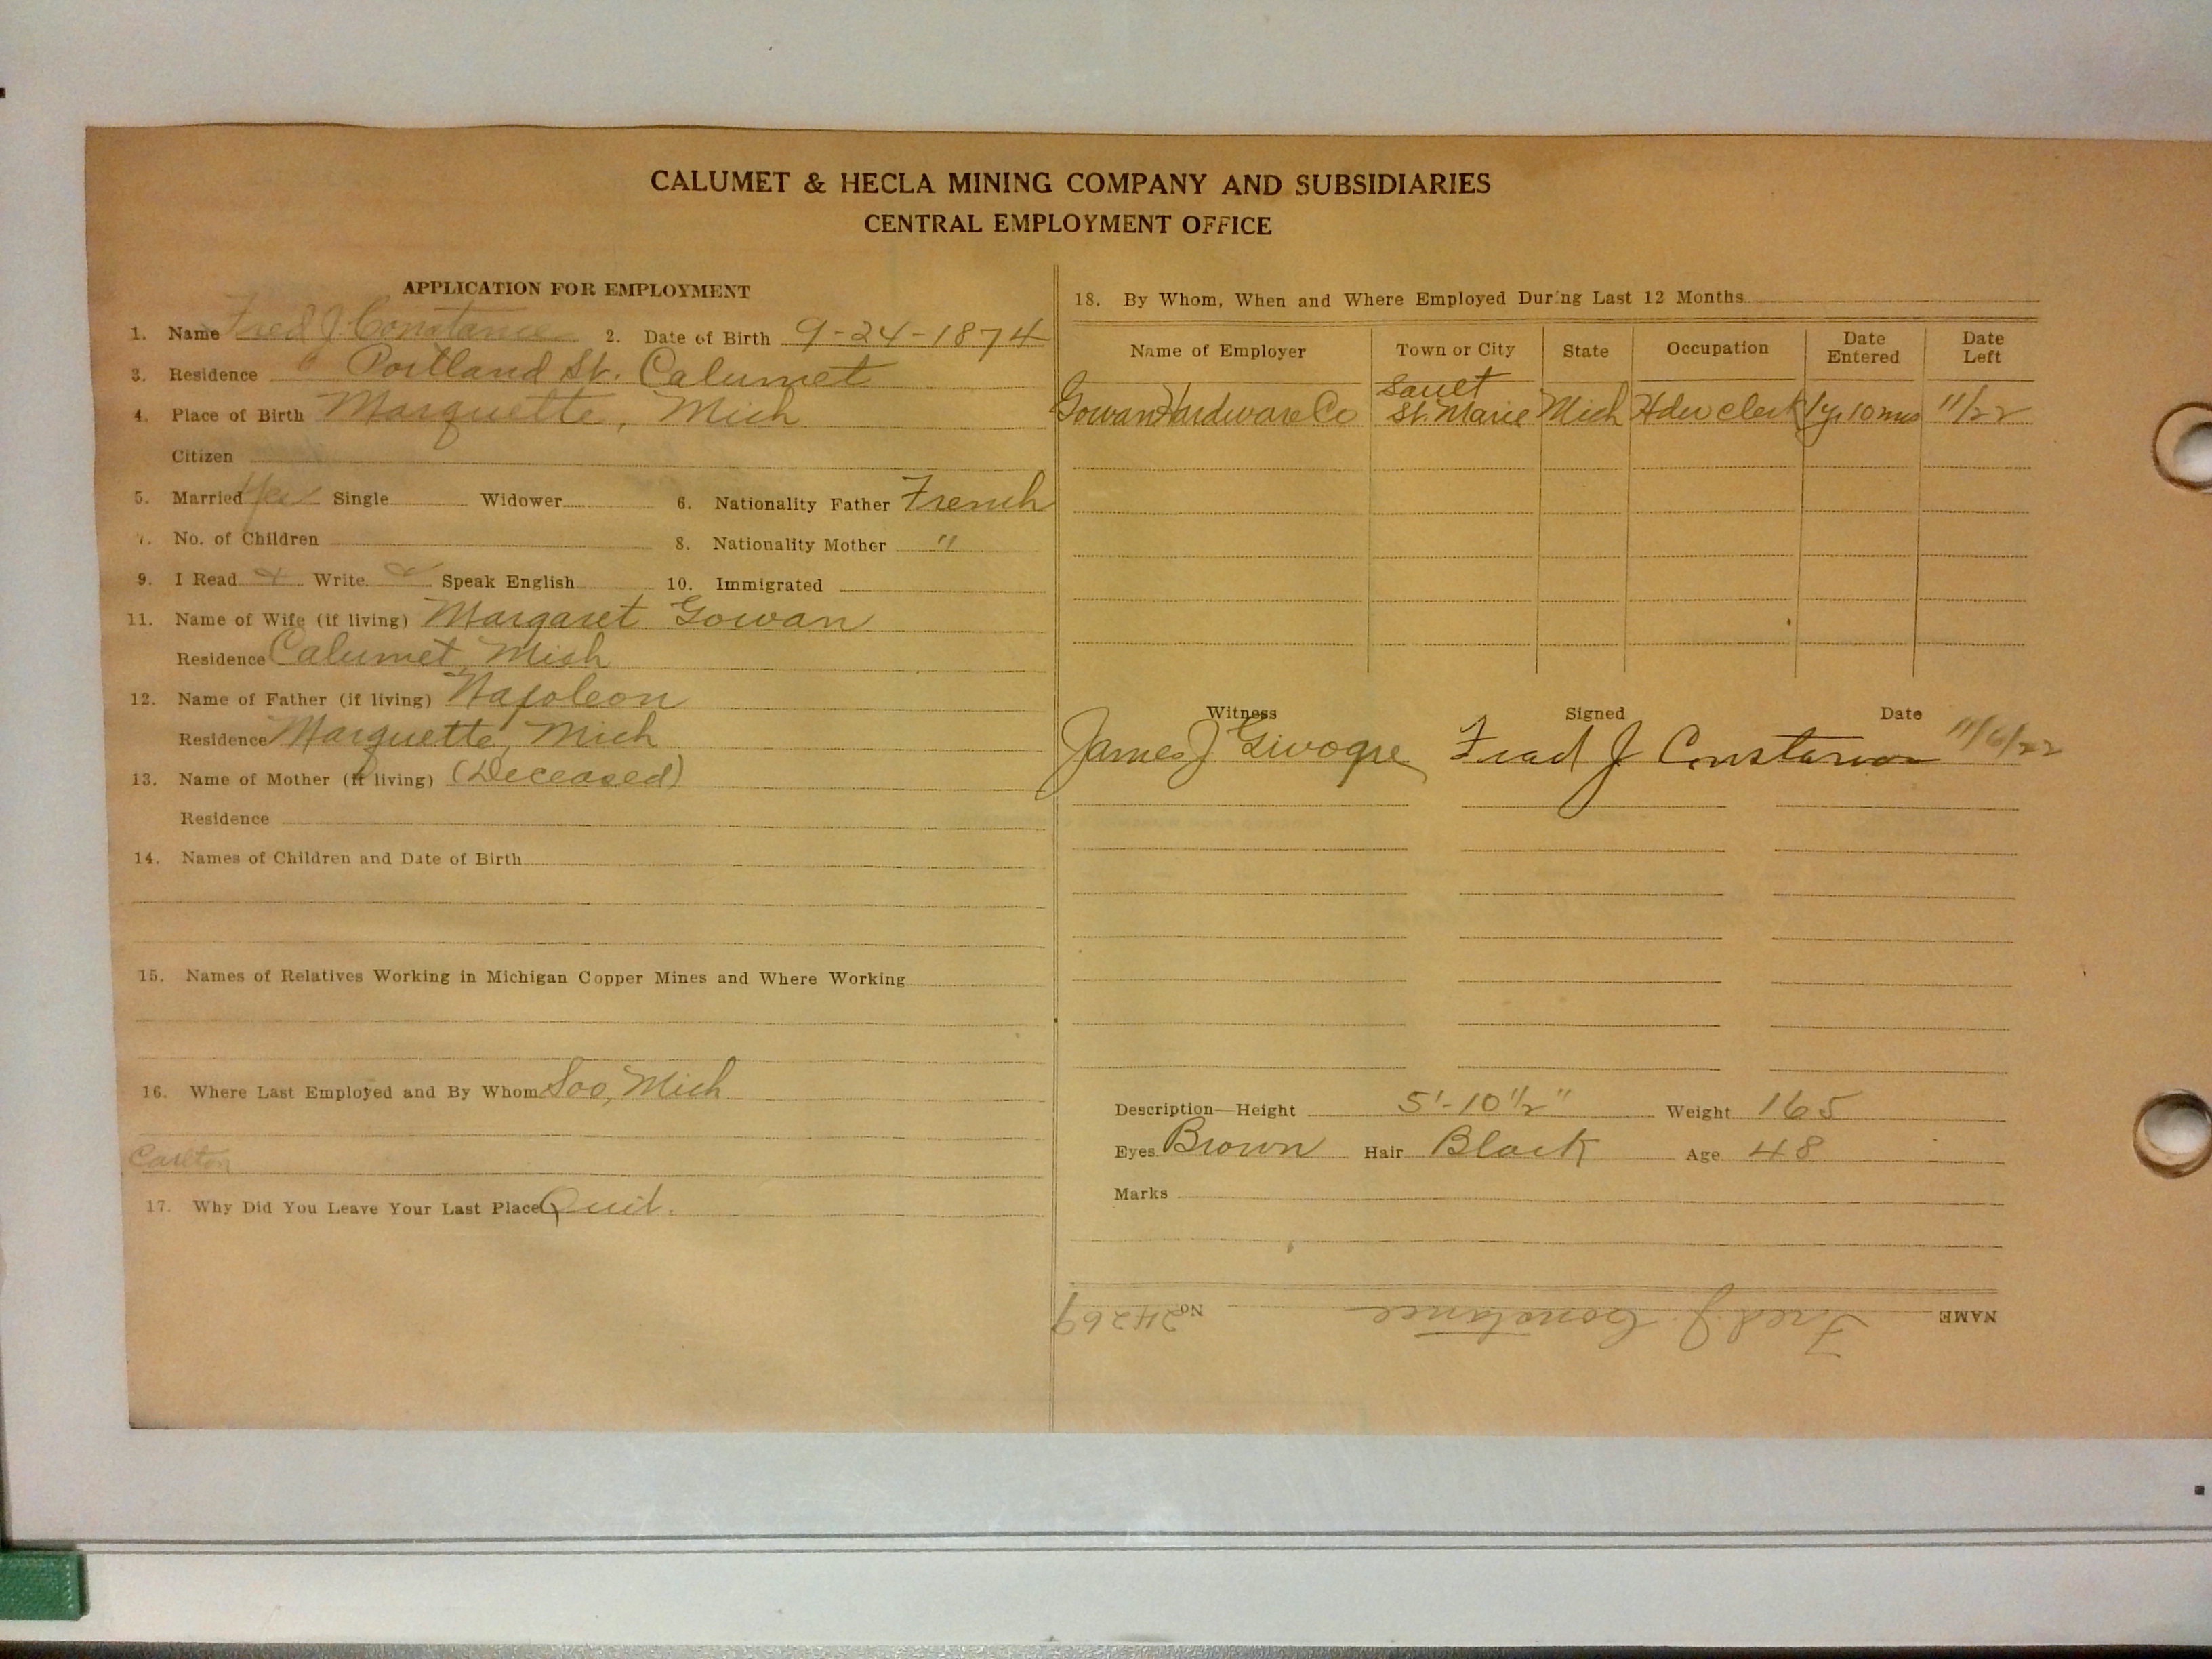 CALUMET & HECLA MINING COMPANY AND SUBSIDIARIES
CENTRAL EMPLOYMENT OFFICE
APPLICATION FOR EMPLOYMENT
1. Name Fred J. Constance 2. Date of Birth 9-24-1874
3. Residence Portland St. Calumet
4. Place of Birth Marquette, Mich
Citizen
5. Married Yes Single Widower 6. Nationality Father French
7. No. of Children 8. Nationality Mother "
9. I Read Write Speak English 10. Immigrated
11. Name of Wife (if living) Margaret Gowan
Residence Calumet, Mich
12. Name of Father (if living) Napoleon
Residence Marquette, Mich
13. Name of Mother (if living) (Deceased)
Residence
14. Names of Children and Date of Birth
15. Names of Relatives Working in Michigan Copper Mines and Where Working
16. Where Last Employed and By Whom Soo, Mich
Carlton
17. Why Did You Leave Your Last Place Quit.
18. By Whom, When and Where Employed During Last 12 Months
Name of Employer Town or City State Occupation Date Entered Date Left
Gowan Hardware Co Sauet St. Marie Mich Hdw clerk 1 yr 10 mos 11/22
Witness Signed Date
James J Fred J Constance 11/6/22
Description—Height 5'-10 1/2" Weight 165
Eyes Brown Hair Black Age 48
Marks
NAME Fred J. Constance No. 24269